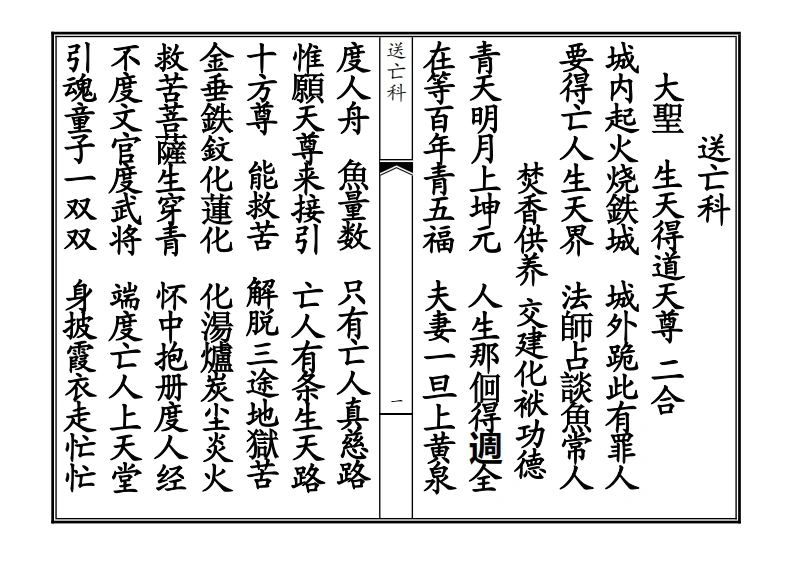 送亡科
大聖 生天得道天尊 二合
城内起火烧鉄城 城外跪此有罪人
要得亡人生天界 法師占談魚常人
焚香供养 交建化袱功德
青天明月上坤元 人生那佪得週全
在等百年青五福 夫妻一旦上黄泉
送亡科
一
度人舟 魚量数 只有亡人真慈路
惟願天尊来接引 亡人有条生天路
十方尊 能救苦 解脱三途地獄苦
金垂鉄鈫化蓮化 化湯爐炭尘炎火
救苦菩薩生穿青 怀中抱册度人经
不度文官度武将 端度亡人上天堂
引魂童子一双双 身披霞衣走忙忙